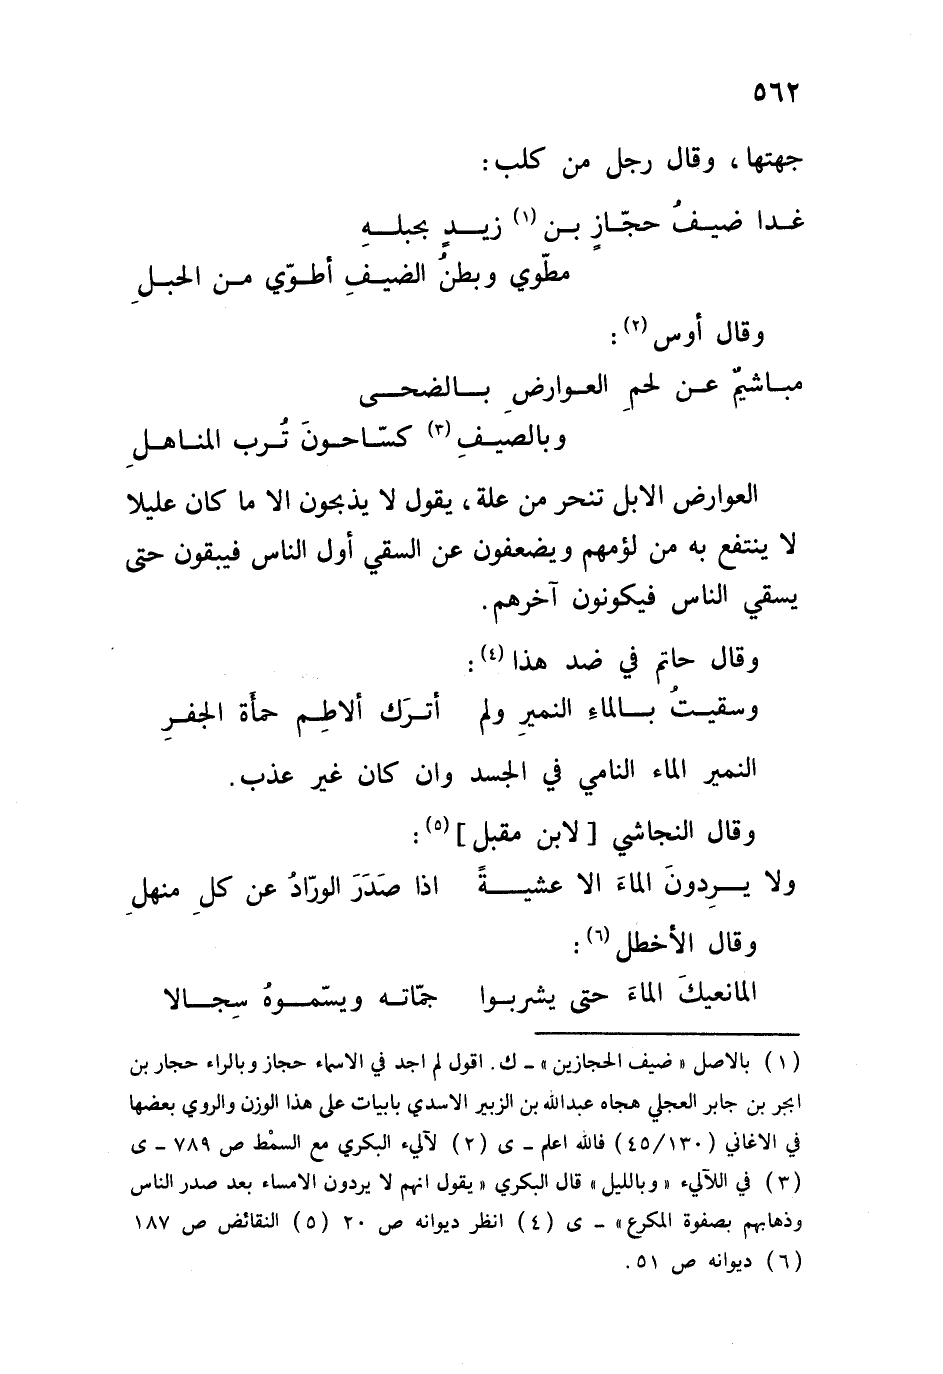 ٥٦٢
جهتها، وقال رجل من كلب:
غدا ضيفُ حجّازٍ بن (١) زيدٍ بحبلهِ
مطّوي وبطنُ الضيفِ أطوّي من الحبلِ
وقال أوس (٢):
مباشيمٌ عن لحمِ العوارضِ بالضحى
وبالصيفِ (٣) كسّاحونَ تُرب المناهلِ
العوارض الابل تنحر من علة، يقول لا يذبحون الا ما كان عليلا
لا ينتفع به من لؤمهم ويضعفون عن السقي أول الناس فيبقون حتى
يسقي الناس فيكونون آخرهم.
وقال حاتم في ضد هذا (٤):
وسقيتُ بالماءِ النميرِ ولم أترَك ألاطِم حمأَة الجفرِ
النمير الماء النامي في الجسد وان كان غير عذب.
وقال النجاشي [لابن مقبل] (٥):
ولا يرِدونَ الماءَ الا عشيةً اذا صَدَرَ الورّادُ عن كلِ منهلِ
وقال الأخطل (٦):
المانعيكَ الماءَ حتى يشربوا جمّاته ويسّموهُ سِجالا
(١) بالاصل «ضيف الحجازين» ـ ك. اقول لم اجد في الاسماء حجاز وبالراء حجار بن
ابجر بن جابر العجلي هجاه عبدالله بن الزبير الاسدي بابيات على هذا الوزن والروي بعضها
في الاغاني (٤٥/١٣٠) فالله اعلم ـ ى (٢) لآليء البكري مع السمْط ص ٧٨٩ ـ ى
(٣) في اللآليء «وبالليل» قال البكري «يقول انهم لا يردون الامساء بعد صدر الناس
وذهابهم بصفوة المكرع» ـ ى (٤) انظر ديوانه ص ٢٠ (٥) النقائض ص ١٨٧
(٦) ديوانه ص ٥١.